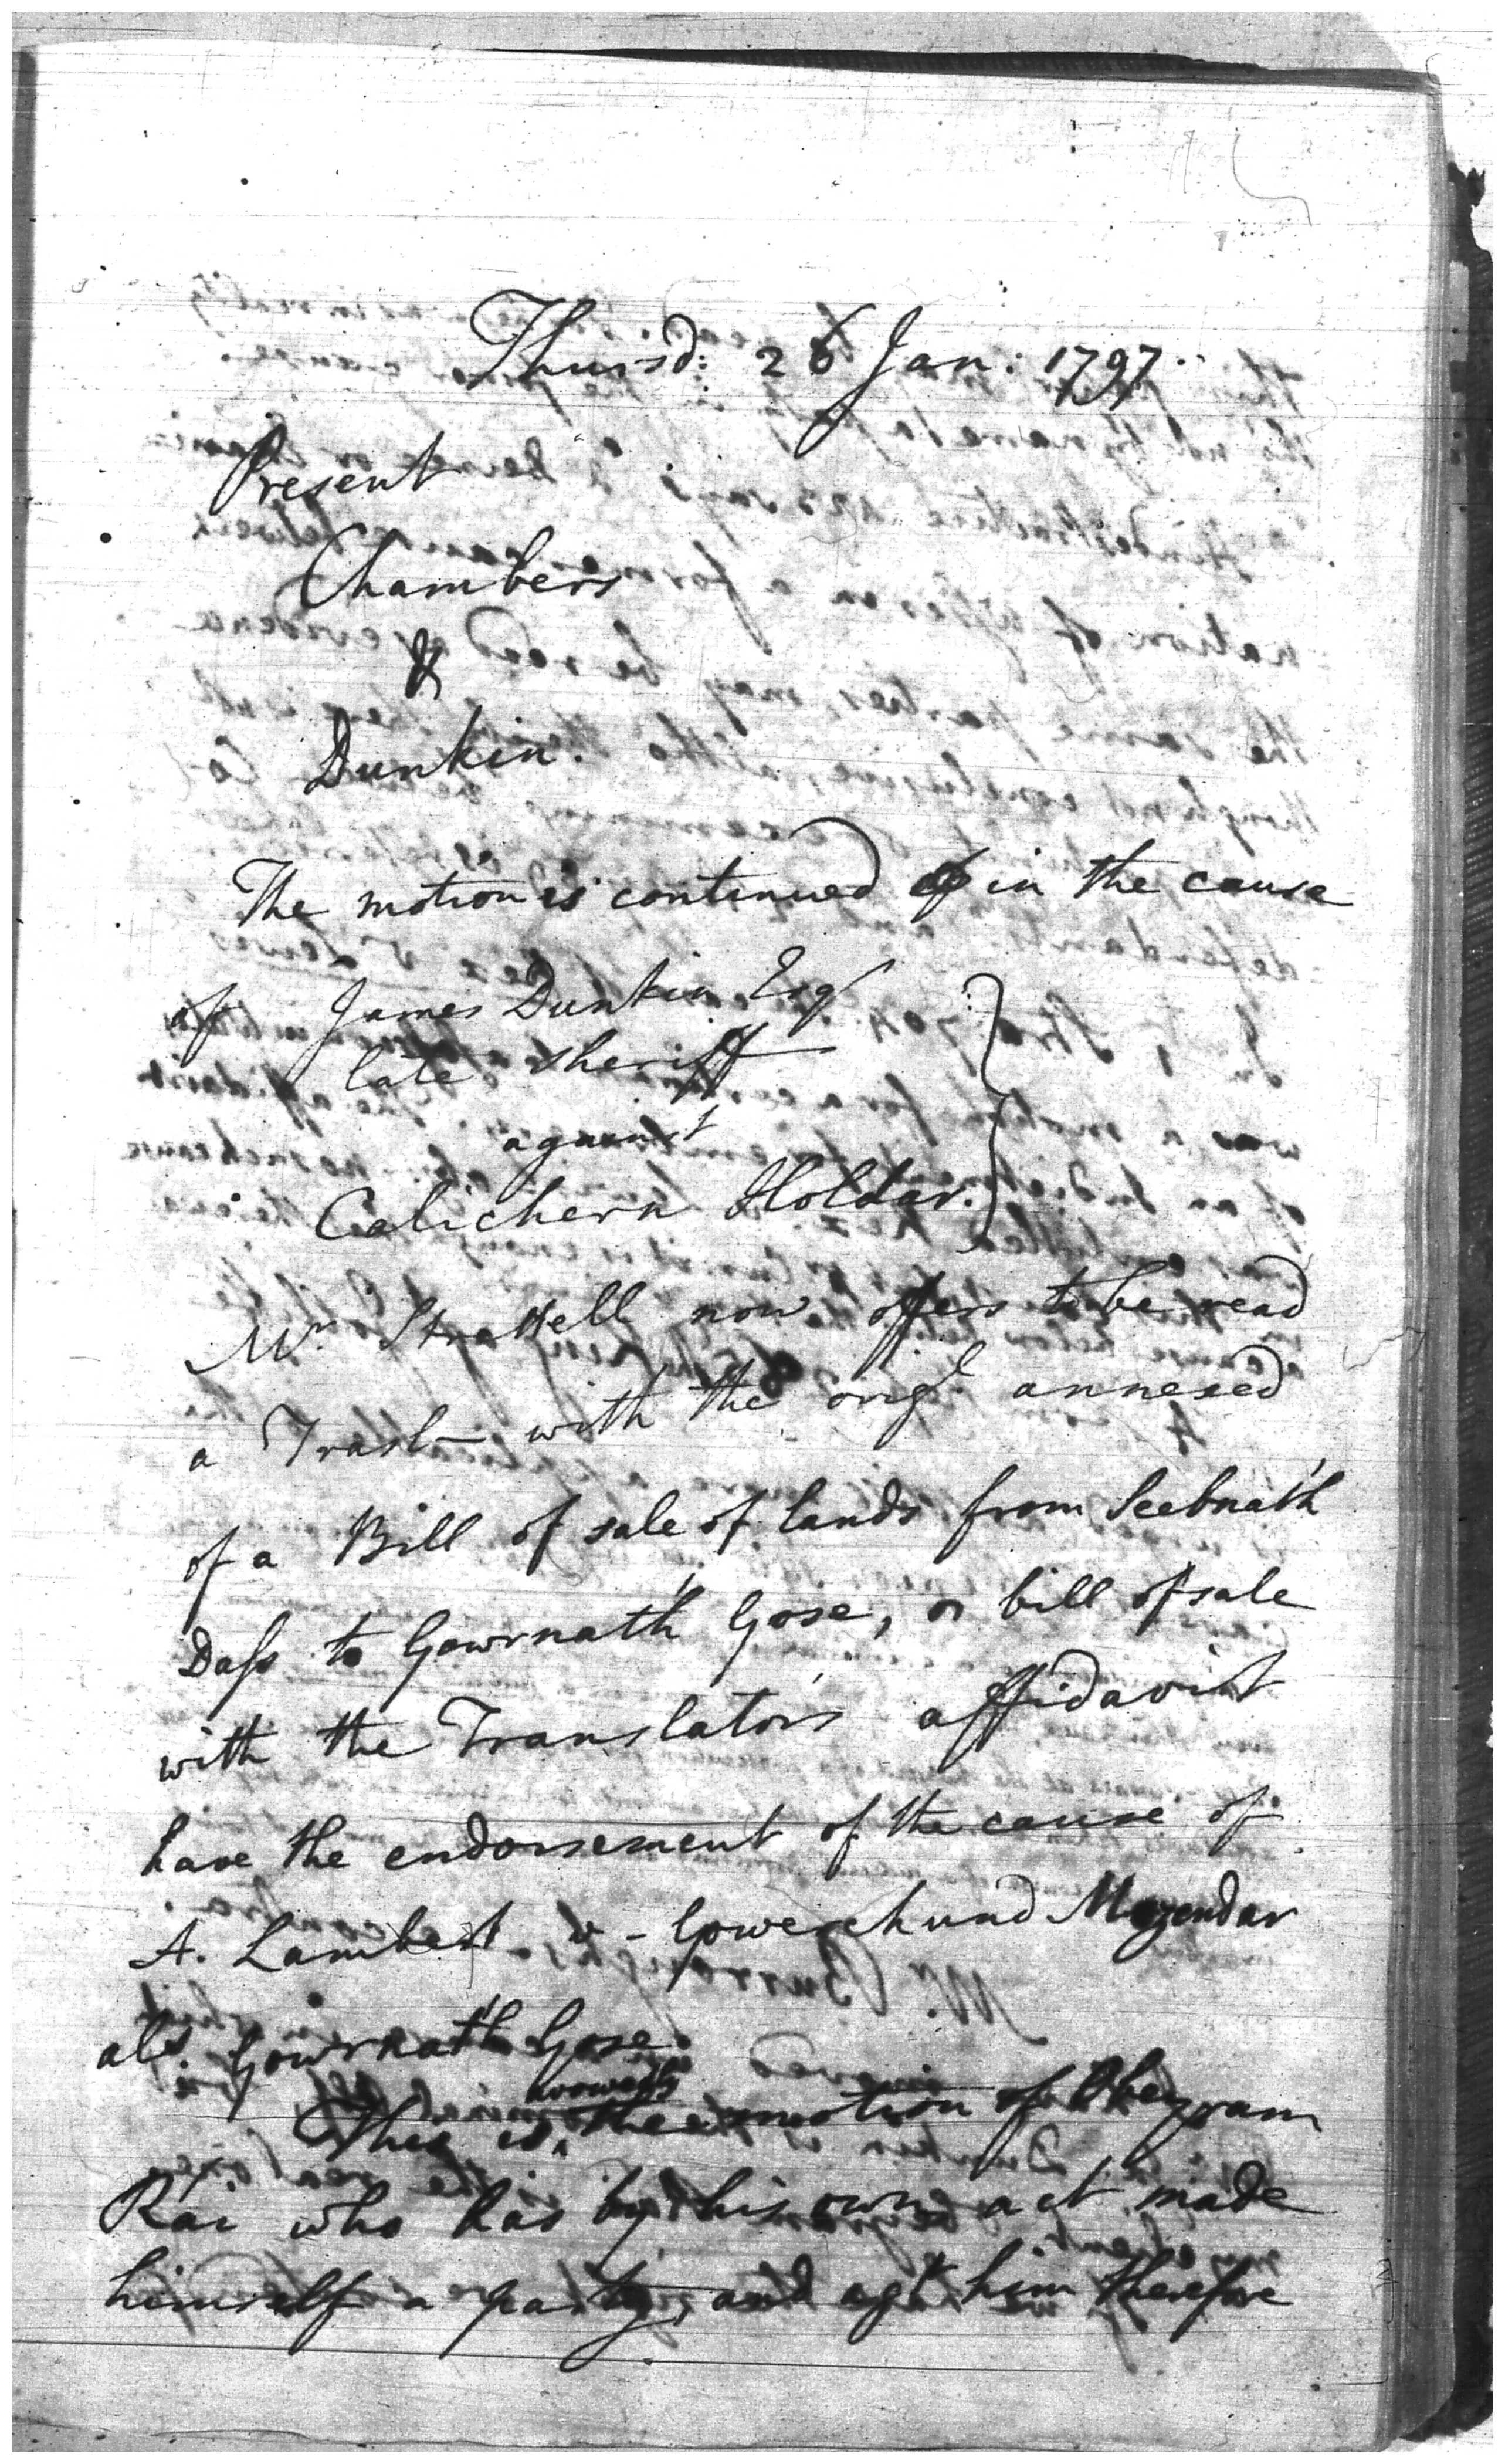 Thursd: 26 Jan: 1797.
Present
Chambers
&
Dunkin.
The motion is continued in the cause
of James Dunkin Esqr
late Sheriff
against
Calichern Holdar.
Mr. Strettell now offers to be read
a Transl- with the origl annexed
of a Bill of sale of lands from Seebnath
Dass to Gowrnath Gose, or bill of sale
with the Translator's affidavit
have the endorsement of the cause of
A. Lambert v - Gowerchund Mozendar
als. Gowrnath Gose.
avowedly
This is the motion of Obeyram
Rai who has by his own act made
himself a party, and agt him therefore